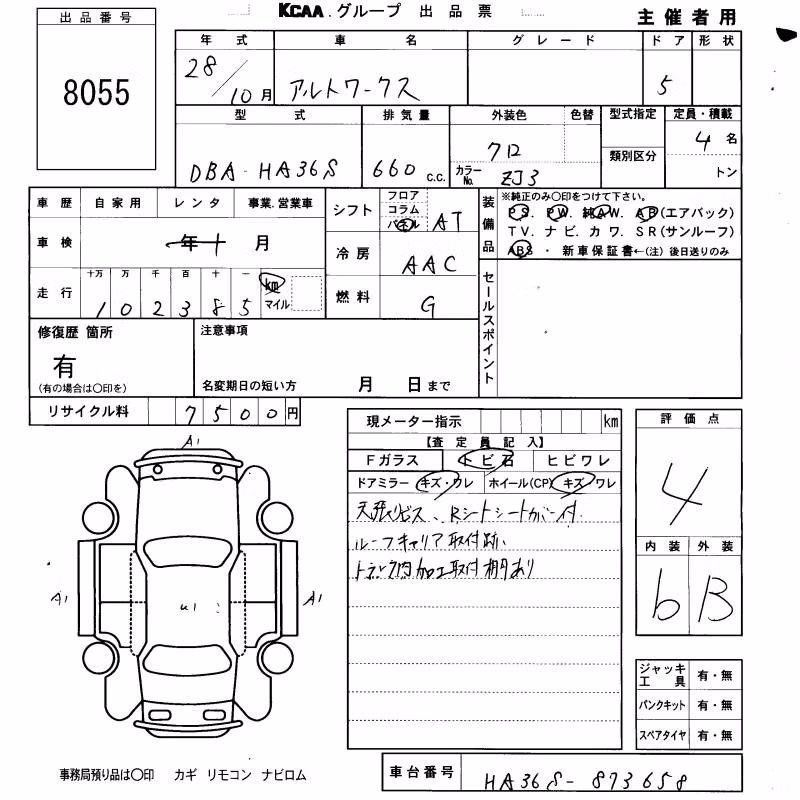 KCAA.グループ 出品票
主催者用
出品番号
8055
年式 車名 グレード ドア 形状
28/10月 アルトワークス 5
型式 排気量 外装色 色替 型式指定 定員・積載
DBA-HA36S 660 c.c. クロ 4名
カラーNo. ZJ3 類別区分 トン
車歴 自家用 レンタ 事業.営業車
車検 年 月
走行 十万 万 千 百 十 一
102385 km マイル
シフト フロア コラム パネル AT
冷房 AAC
燃料 G
装備品 ※純正のみ○印をつけて下さい。
PS. PW. 純AW. AB(エアバック)
TV. ナビ. カワ. SR(サンルーフ)
ABS ・ 新車保証書←(注)後日送りのみ
セールスポイント
修復歴 箇所
有
(有の場合は○印を)
注意事項
名変期日の短い方 月 日まで
リサイクル料 7500円
現メーター指示 km
【査定員記入】
Fガラス トビ石 ヒビワレ
ドアミラー キズ・ワレ ホイール(CP) キズ・ワレ
天張りビス、Rシートシートカバー付
ルーフキャリア取付跡
トランク内加工取付棚あり
評価点
4
内装 外装
b B
A1
A1 U1 A1
ジャッキ工具 有・無
パンクキット 有・無
スペアタイヤ 有・無
事務局預り品は○印 カギ リモコン ナビロム
車台番号 HA36S-873658